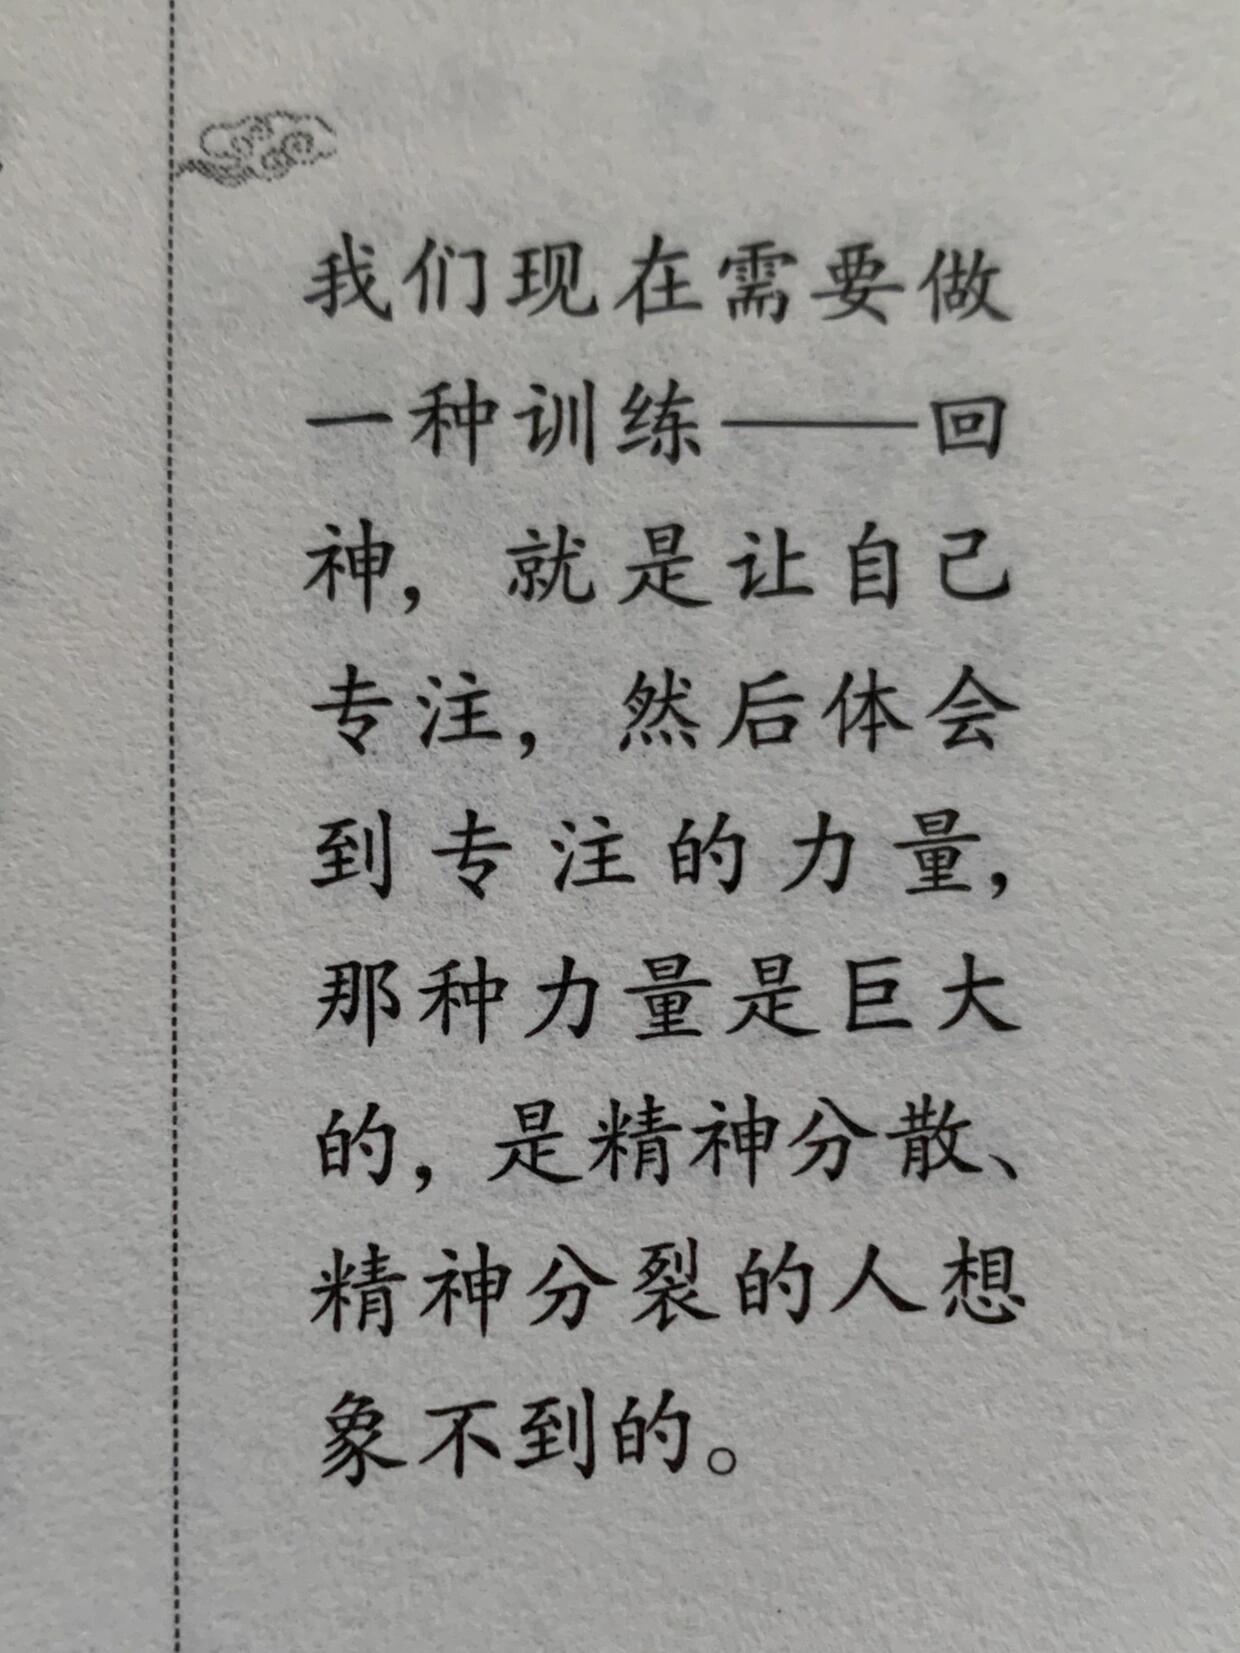 我们现在需要做
一种训练——回
神，就是让自己
专注，然后体会
到专注的力量，
那种力量是巨大
的，是精神分散、
精神分裂的人想
象不到的。